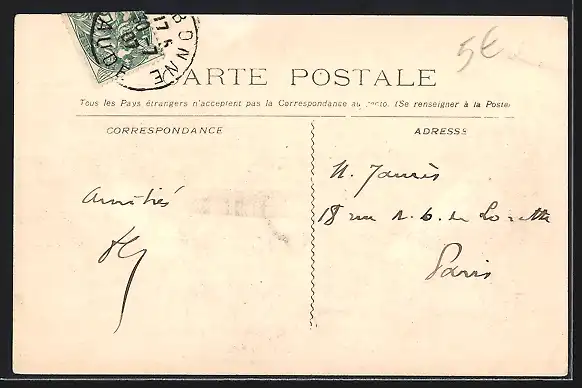 5€
BONNE
17 5
CARTE POSTALE
Tous les Pays étrangers n'acceptent pas la Correspondance au recto. (Se renseigner à la Poste)
CORRESPONDANCE
ADRESSE
Amitiés
M. Jaurès
18 rue N. D. de Lorette
Paris